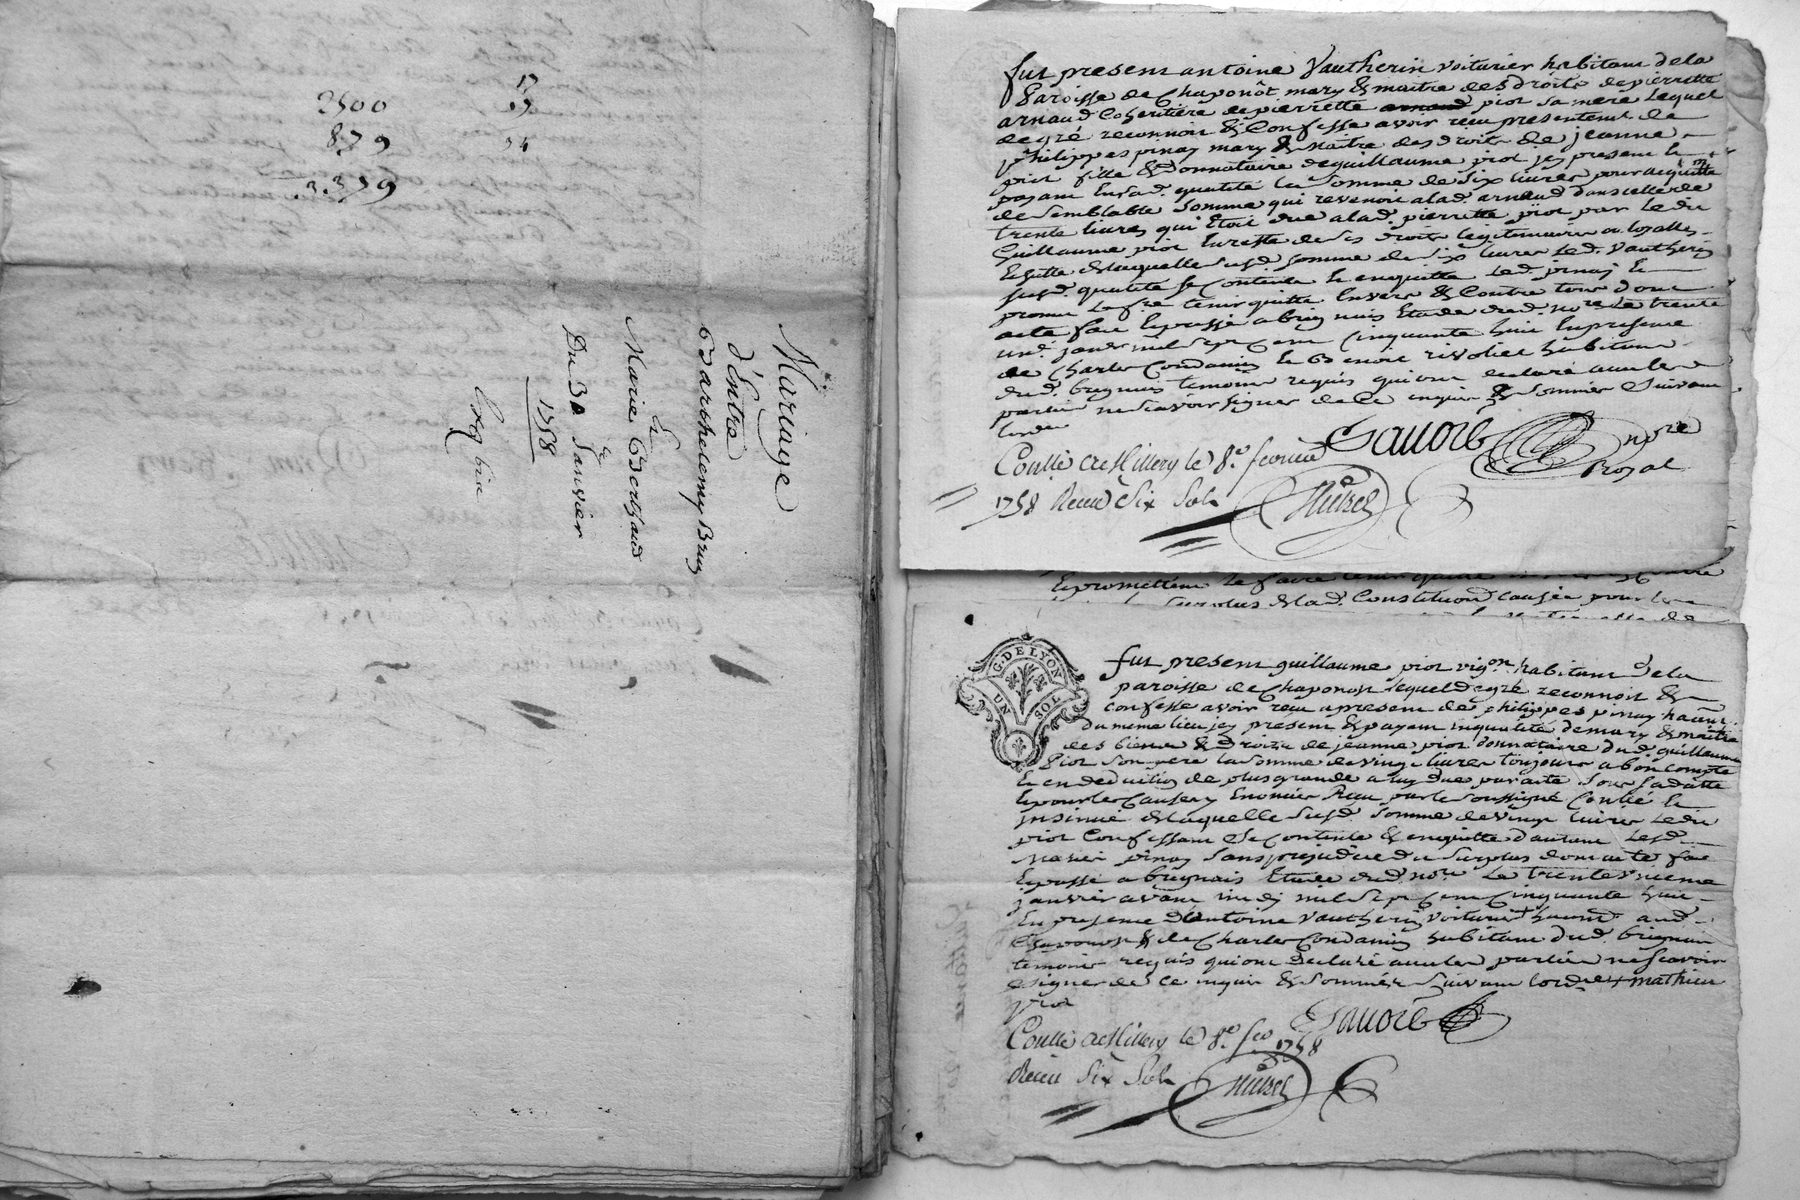 2500
879
3379
17
17
34
Mariage
d'Entre
Barthelemy Bruy
&
Marie Berthaud
Du 30 e Janvier
1758
fut present antoine Vautherin voiturier habitant de la
Paroisse de Chaponôt mary & maitre des droits de pierrette
arnaud coheritiere de pierrette piot sa mere Lequel
de gré reconnoit & Confesse avoir reçu presentemt de
philippes pinay mary & maitre des droits de jeanne
piot fille & donnataire de guillaume piot icy present &
payant En sad. qualité la somme de six livres pour acquitte
de semblable somme qui revenoit a lad. arnaud dans celle de
trente livres qui Etoit due a lad. pierrette piot par led.
Guillaume piot
Laquelle susd. somme de six livres led. Vautherin
susd. qualité se contente & en quitte Led. pinay &
promet Le fre tenir quitte Envers & Contre tous dont
acte fait & passé a brignais Etude dud. nore Le trente
un. janvr mil sept cent cinquante huit En presence
de Charles Condamin & benoit rivollet habitans
dud. brignais temoins requis qui ont declaré avec les
parties ne scavoir signer de ce enquis & sommés suivant
lordce
Savore nore
Royal
Conllé a Millery le 8.e fevrier
1758 Recu Six Sols
& promettent Le faire tenir quitte
surplus & lad. Constitution causée pour
G. DE LYON
UN SOL
fut present guillaume piot vigon habitant de la
paroisse de Chaponost Lequel de gré reconnoit &
confesse avoir reçu a present de philippes pinay habitant
du meme lieu icy present & payant en qualité de mary & maitre
des biens & droits de jeanne piot donnataire dud. guillaume
Piot son pere la somme de vingt livres toujours a bon compte
& en deduction de plus grande a luy due par acte sous sa datte
& pour les causes y Enoncées Reçu par le soussigné Conllé &
jnsinué & laquelle susd. somme de vingt livres led.
piot Confessant se contente & en quitte d'autant Lesd.
Mariés pinay sans prejudice du surplus dont acte fait
& passé a brignais Etude dud. nore Le trente unieme
janvier avant midy mil sept cent cinquante huit
En presence d'antoine Vautherin voiturier habitant aud.
Chaponost & de Charles Condamin habitant dud. brignais
temoins requis qui ont declaré avec les parties ne scavoir
signer de ce enquis & sommés suivant lordce + mathieu
piot
Savore
Conllé a Millery le 8.e fev. 1758
Recu Six Sols